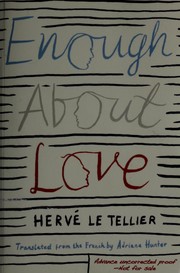 Enough
About
Love
HERVÉ LE TELLIER
Translated from the French by Adriana Hunter
Advance uncorrected proof
—Not for sale